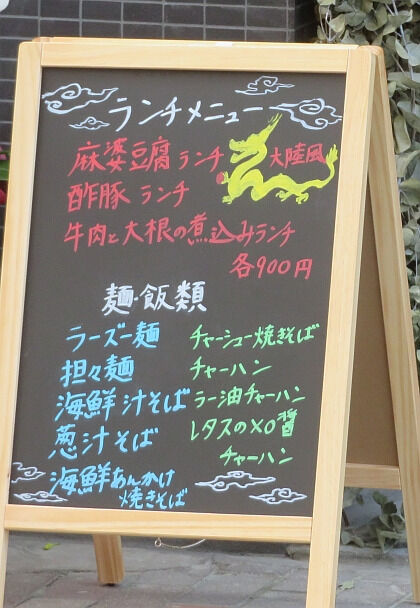 ランチメニュー
麻婆豆腐ランチ 大陸風
酢豚 ランチ
牛肉と大根の煮込みランチ
各900円
麺・飯類
ラーズー麺
担々麺
海鮮汁そば
葱汁そば
海鮮あんかけ
焼きそば
チャーシュー焼きそば
チャーハン
ラー油チャーハン
レタスのXO醤
チャーハン